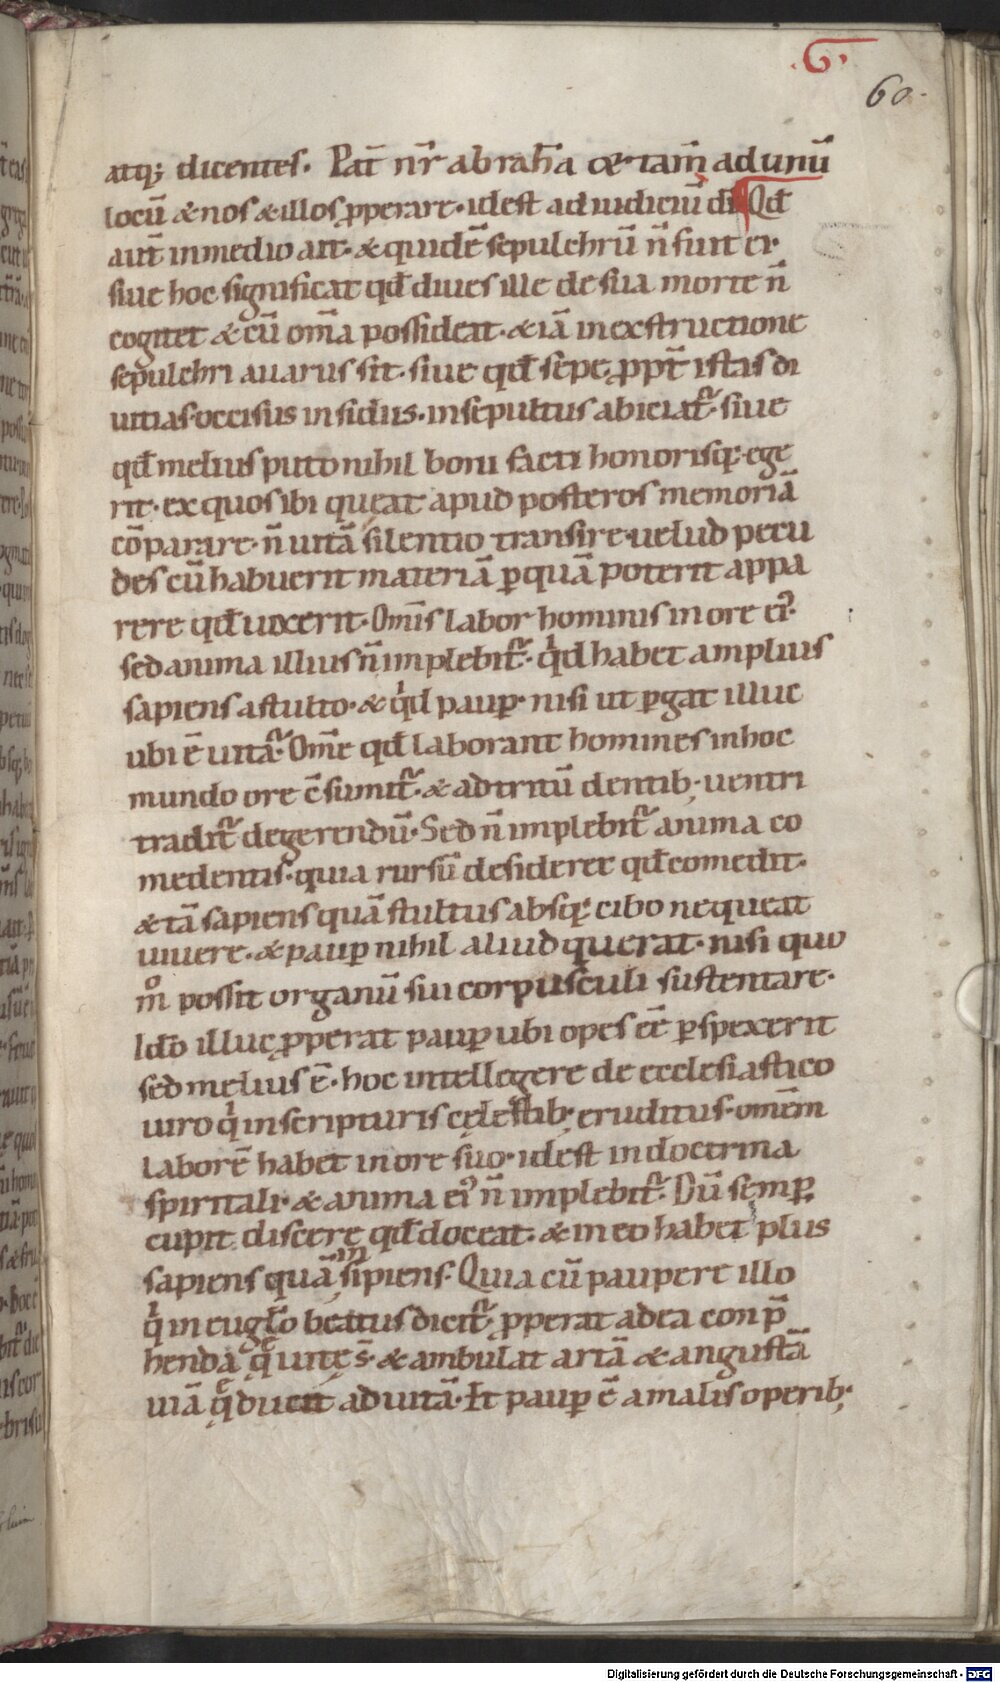 .G.
60.
atq; dicentes. Pat̄ nr̄ abrah̄a & tam̄ ad unū
locū & nos & illos ꝓperare. idest ad iudiciū dī Qd̄
aut̄ in medio ait. & quidē sepulchrū n̄ fuit ei.
siue hoc significat qd̄ diues ille de sua morte n̄
cogitet & cū om̄a possideat. & iā in exstructione
sepulchri auarus sit. siue qd̄ sepe ꝓpt̄ istas di
uitias occisus insidiis. insepultus abiciat᷑. siue
qd̄ melius puto nihil boni facti honorisq; ege
rit. ex quo sibi queat apud posteros memoriā
cōparare. n̄ uitā silentio transire. uelud pecu
des cū habuerit materiā ꝑ quā poterit appa
rere qd̄ uixerit. Om̄is labor hominis in ore ei᾽.
sed anima illius n̄ implebit᷑. qͥd habet amplius
sapiens a stulto. & qͥd pauꝑ. nisi ut ꝑgat illuc
ubi ē uita᷑. Om̄e qd̄ laborant homines in hoc
mundo ore c̄sumit᷑. & adtritū dentib; uentri
tradit᷑ degerendū. Sed n̄ implebit᷑ anima co
medentis. quia rursū desideret qd̄ comedit.
& tā sapiens quā stultus absq; cibo nequeat
uiuere. & pauꝑ nihil aliud querat. nisi quo
m̊ possit organū sui corpusculi sustentare.
Ido̅ illuc ꝓperat pauꝑ ubi opes eē ꝑspexerit
sed melius ē. hoc intellegere de ecclesiastico
uiro qͥ in scripturis cęlestib; eruditus. omēm
laborē habet in ore suo. idest in doctrina
spiritali. & anima ei᾽ n̄ implebit᷑. Dū semꝑ
cupit discere qd̄ doceat. & in eo habet plus
sapiens quā insipiens. Quia cū paupere illo
qͥ in eugl̄o beatus dicit᷑. ꝓperat ad ea conp̄
hendā quę uitę s̄. & ambulat artā & angustā
uiā q̄ ducit ad uitā. Et pauꝑ ē a malis operib;
Digitalisierung gefördert durch die Deutsche Forschungsgemeinschaft - DFG